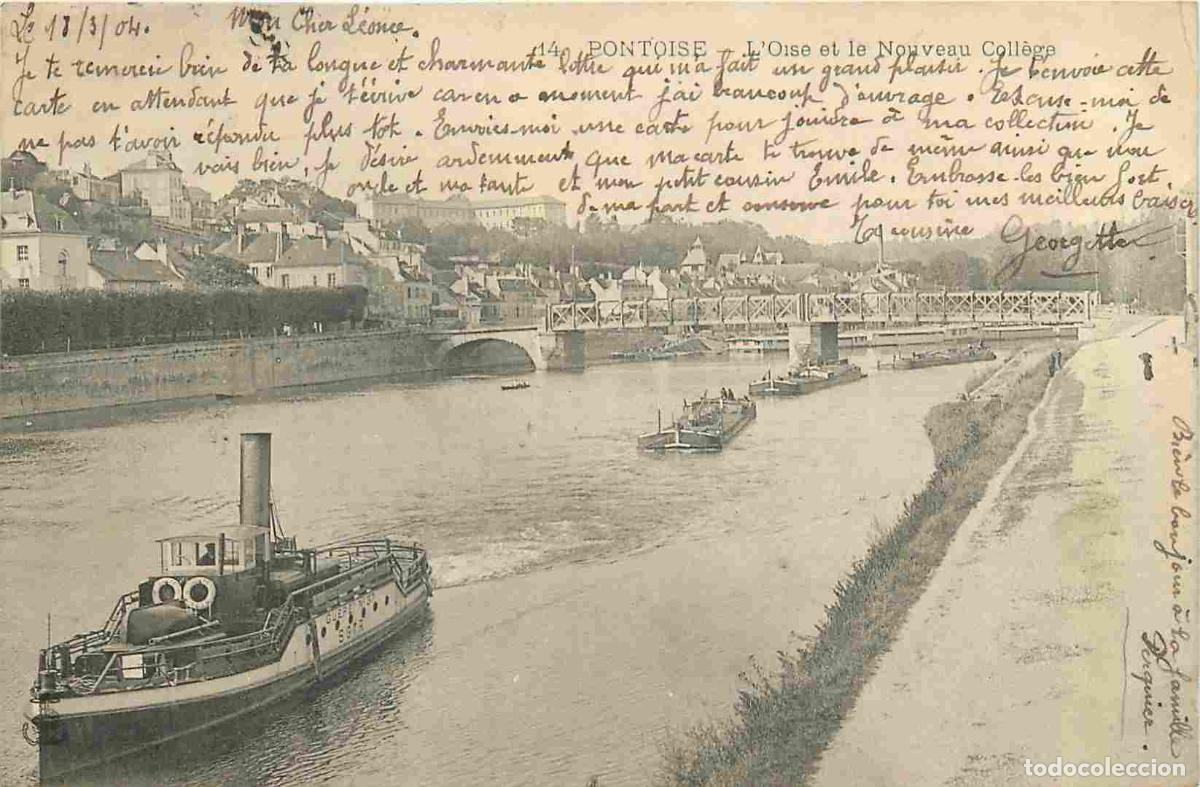 Le 18/3/04. Mon Cher Léonce.
14. PONTOISE — L'Oise et le Nouveau Collège
Je te remercie bien de ta longue et charmante lettre qui m'a fait un grand plaisir. Je t'envoie cette
carte en attendant que je t'écrive car en ce moment j'ai beaucoup d'ouvrage. Excuse-moi de
ne pas t'avoir répondu plus tôt. Envoies-moi une carte pour joindre à ma collection. Je
vais bien, je désire ardemment que ma carte te trouve de même ainsi que mon
oncle et ma tante et mon petit cousin Emile. Embrasse-les bien fort
de ma part et conserve pour toi mes meilleurs baisers
Ta cousine Georgette
Bien le bonjour à la famille
GUÊPE
todocoleccion